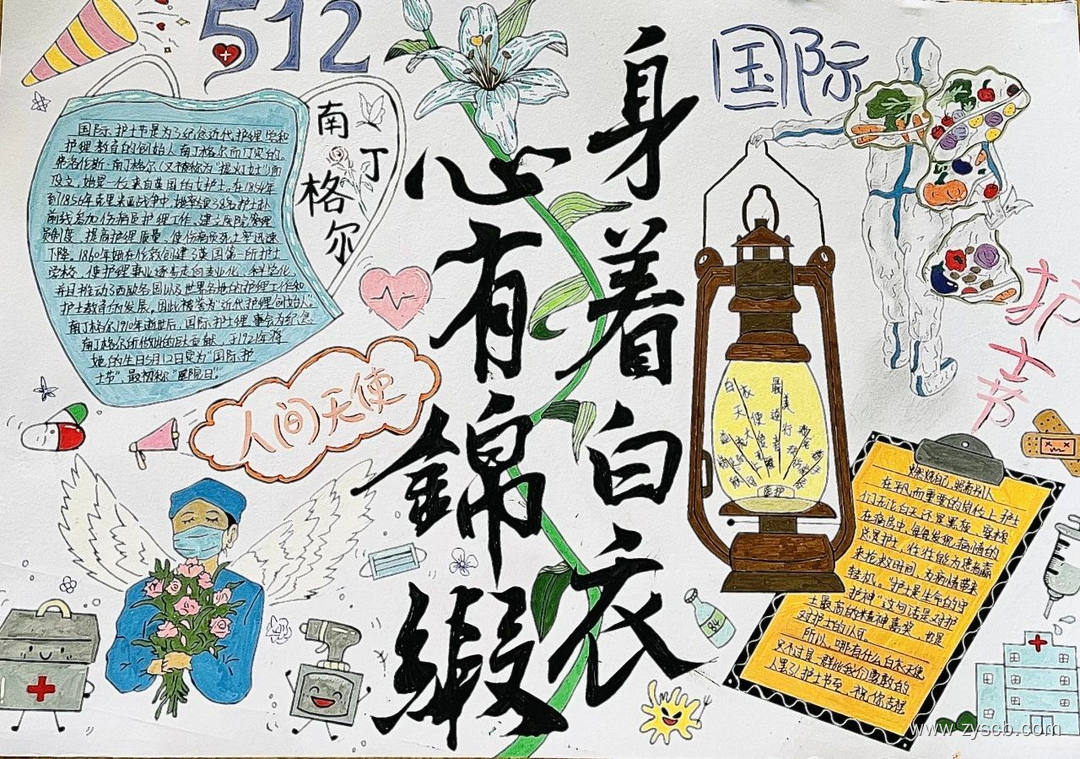 512
国际
护士节
南丁
格尔
国际护士节是为了纪念近代护理学和
护理教育的创始人南丁格尔而订立的
弗洛伦斯·南丁格尔(又被称为"提灯女士")而
设立,她是一位来自英国的女护士,在1854年
到1856年克里米亚战争中,她率领38名护士赴
前线参加伤病员护理工作,建立医院管理
制度、提高护理质量、使伤病员死亡率迅速
下降。1860年她在伦敦创建了英国第一所护士
学校,使护理事业逐步走向专业化、科学化
并且推动了西欧各国以及世界各地的护理工作和
护士教育的发展,因此被誉为"近代护理创始人"
南丁格尔1910年逝世后,国际护士理事会为纪念
南丁格尔所做出的巨大贡献,于1912年将
她的生日5月12日定为"国际护
士节",最初称"医院日"
人间天使
身着白衣
心有锦缎
白衣
天使
最美
逆行
医护
燃烧自己,照亮别人
在平凡而重要的岗位上,护士
们无论白天还是黑夜,穿梭
在病房中,每每发现病情的
往往能为患者赢
来抢救时间,为病情带来
转机。"护士是生命的守
护神"这句话是对护
士最高的精神嘉奖,也是
对护士的认可。
所以,哪有什么白衣天使
84
www.zyscb.com